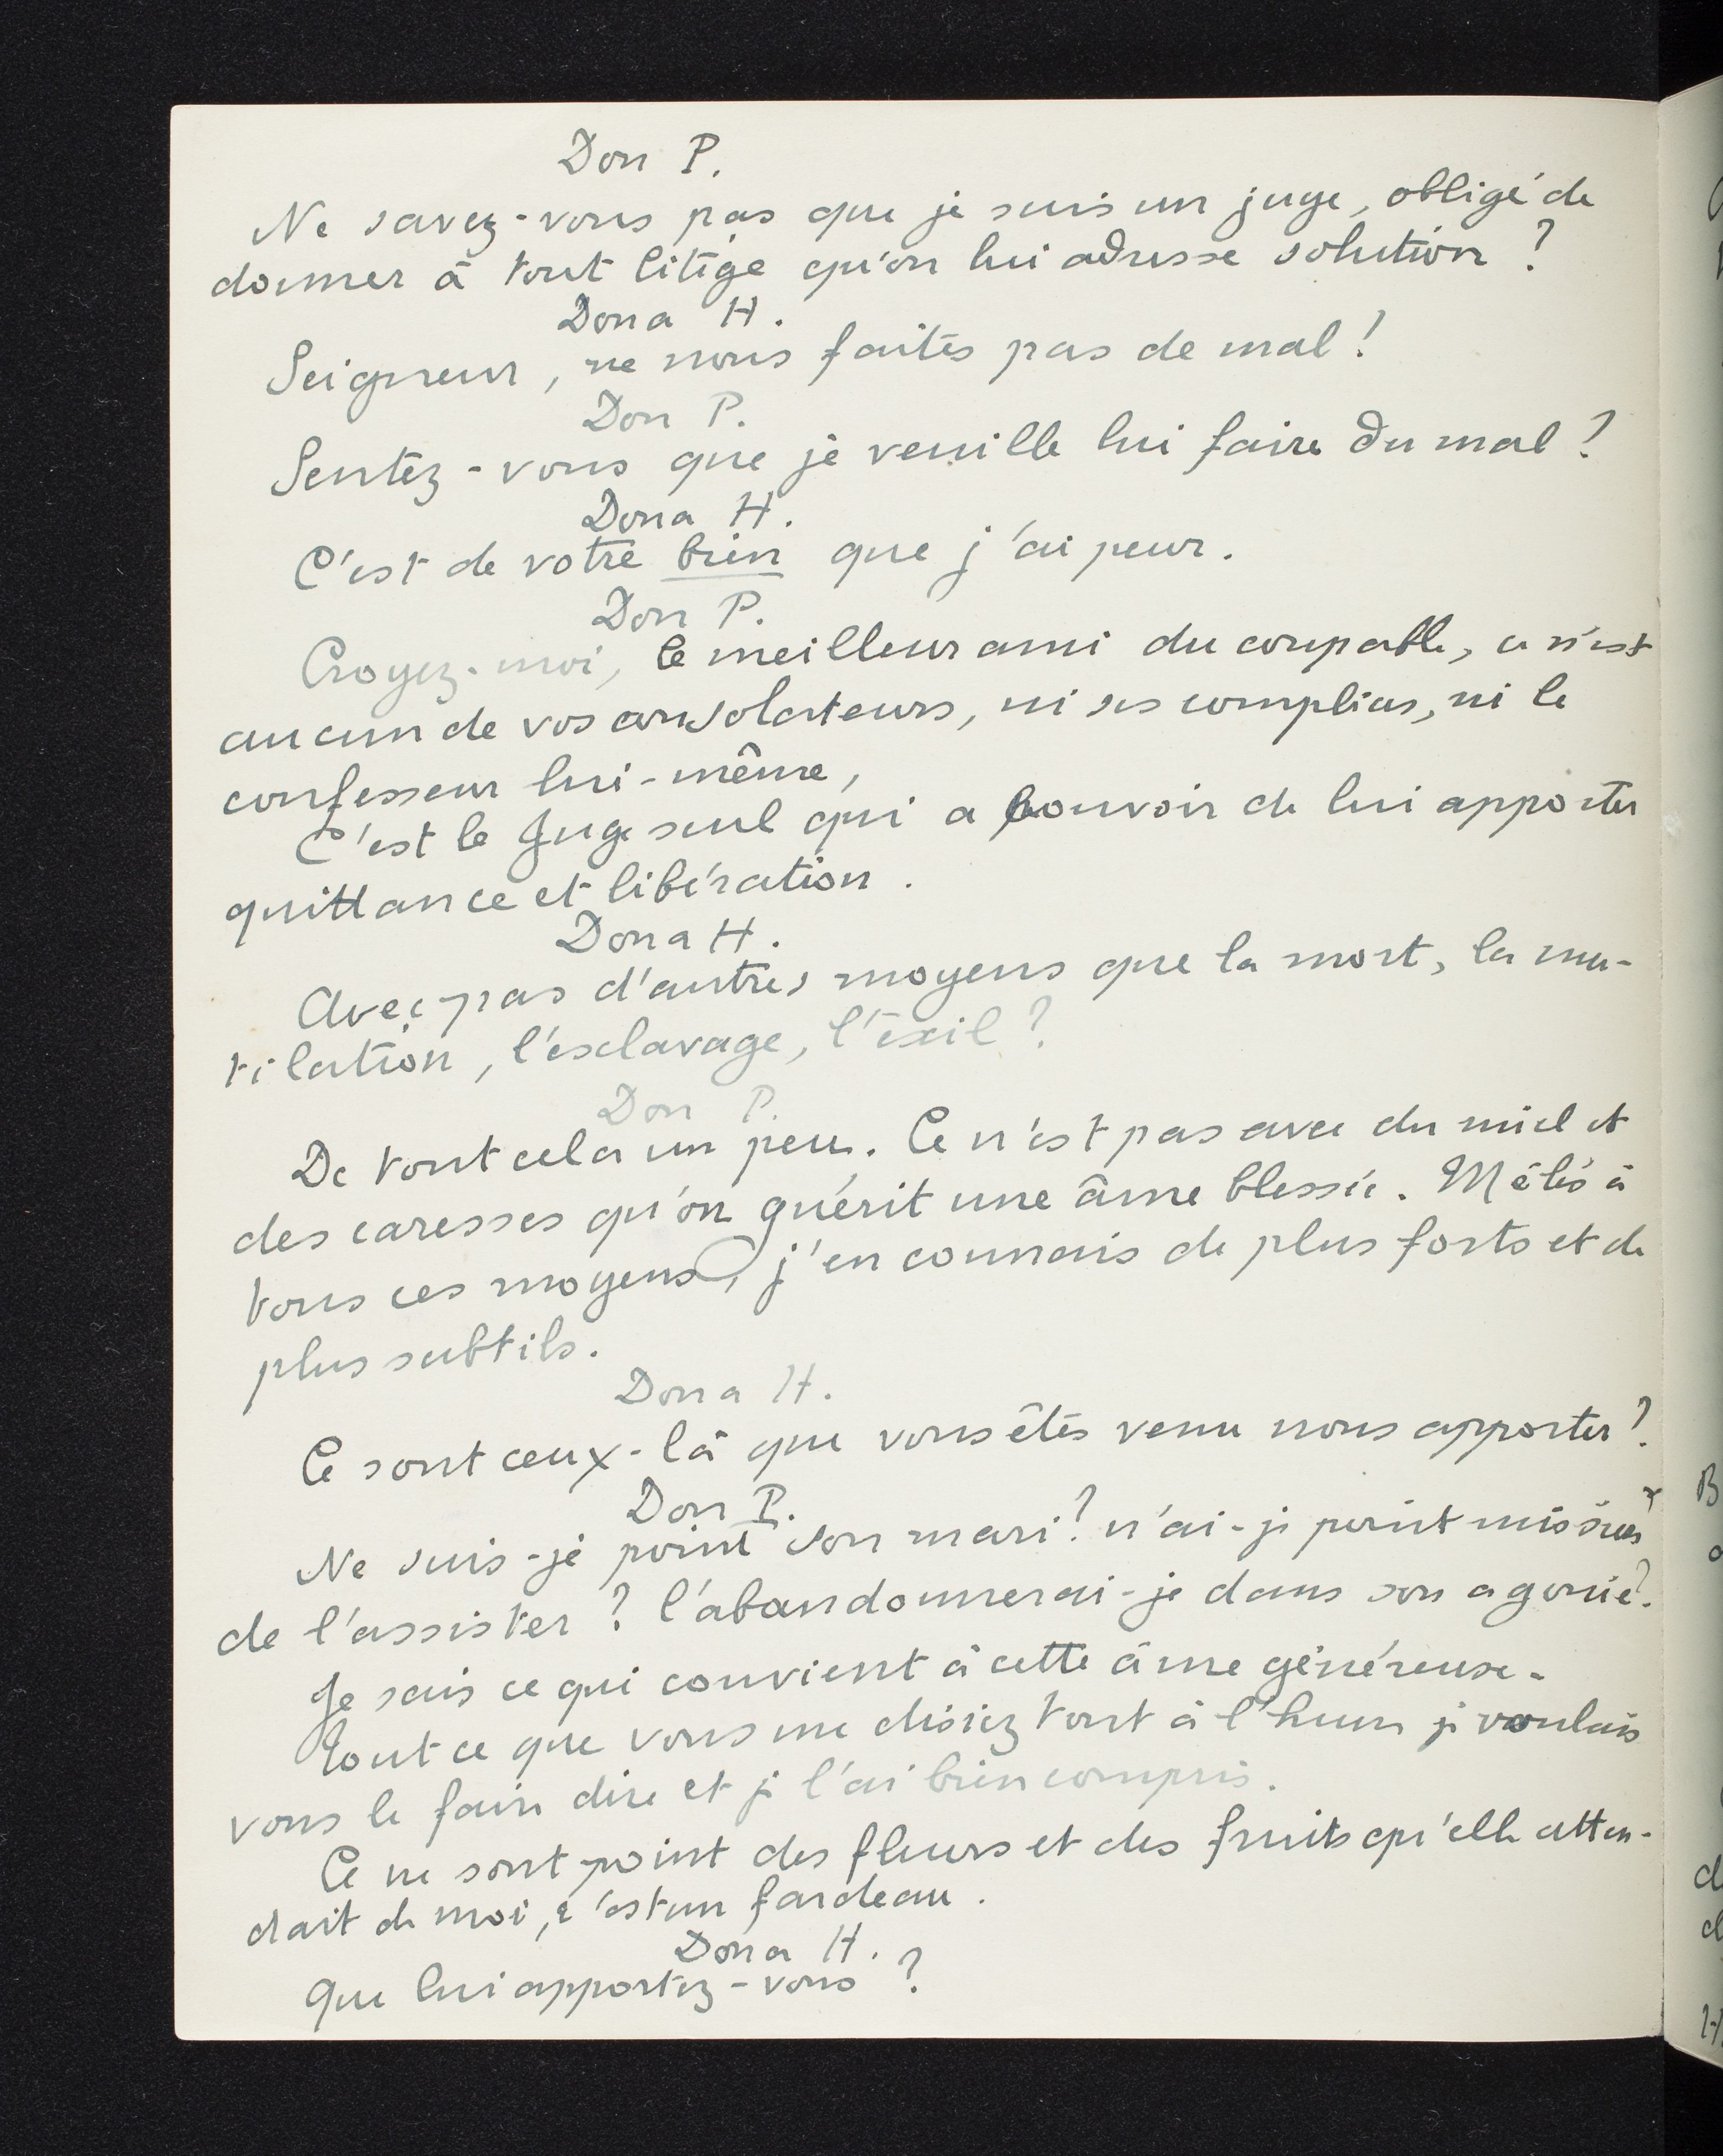 Don P.
Ne savez-vous pas que je suis un juge, obligé de
donner à tout litige qu'on lui adresse solution ?
Dona H.
Seigneur, ne nous faites pas de mal !
Don P.
Sentez-vous que je veuille lui faire du mal ?
Dona H.
C'est de votre bien que j'ai peur.
Don P.
Croyez-moi, le meilleur ami du coupable, ce n'est
aucun de vos consolateurs, ni ses complices, ni le
confesseur lui-même,
C'est le Juge seul qui a pouvoir de lui apporter
quittance et libération.
Dona H.
Avec pas d'autres moyens que la mort, la mu-
tilation, l'esclavage, l'éxil ?
Don P.
De tout cela un peu. Ce n'est pas avec du miel et
des caresses qu'on guérit une âme blessée. Mêlés à
tous ces moyens, j'en connais de plus forts et de
plus subtils.
Dona H.
Ce sont ceux-là que vous êtes venu nous apporter ?
Don P.
Ne suis-je point son mari ? n'ai-je point mission
de l'assister ? l'abandonnerai-je dans son agonie ?
Je sais ce qui convient à cette âme généreuse.
Tout ce que vous me disiez tout à l'heure je voulais
vous le faire dire et je l'ai bien compris.
Ce ne sont point des fleurs et des fruits qu'elle atten-
dait de moi, c'est un fardeau.
Dona H.
Que lui apportez-vous ?